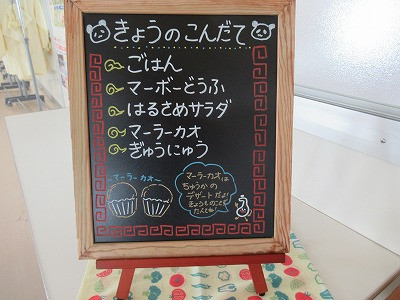 きょうのこんだて
ごはん
マーボーどうふ
はるさめサラダ
マーラーカオ
ぎゅうにゅう
マーラーカオ
マーラーカオは
ちゅうかの
デザートだよ!